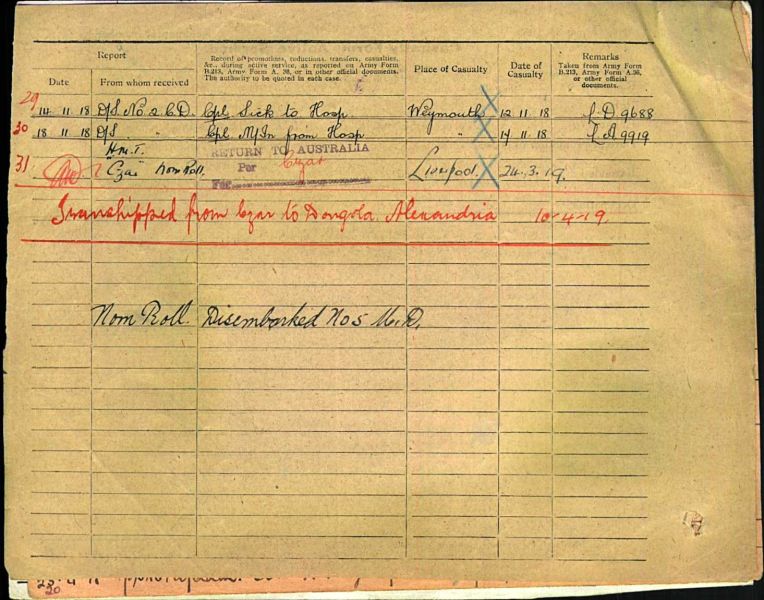 Report
Record of promotions, reductions, transfers, casualties,
&c., during active service, as reported on Army Form
B.213, Army Form A. 36, or in other official documents.
The authority to be quoted in each case.
Place of Casualty
Date of
Casualty
Remarks
Taken from Army Form
B.213, Army Form A.36,
or other official
documents.
Date
From whom received
29
14.11.18 D/S No 2 C.D. Cpl Sick to Hosp. Weymouth 12.11.18 L.D 9688
30
18.11.18 D/S " Cpl M/In from Hosp " 17.11.18 L.A 9919
31
H.M.T.
"Czar" Nom Roll.
RETURN TO AUSTRALIA
Per Czar
For
Liverpool. 24.3.19.
Transhipped from Czar to Dongola. Alexandria 10-4-19.
Nom Roll. Disembarked No 5 M.D.
20